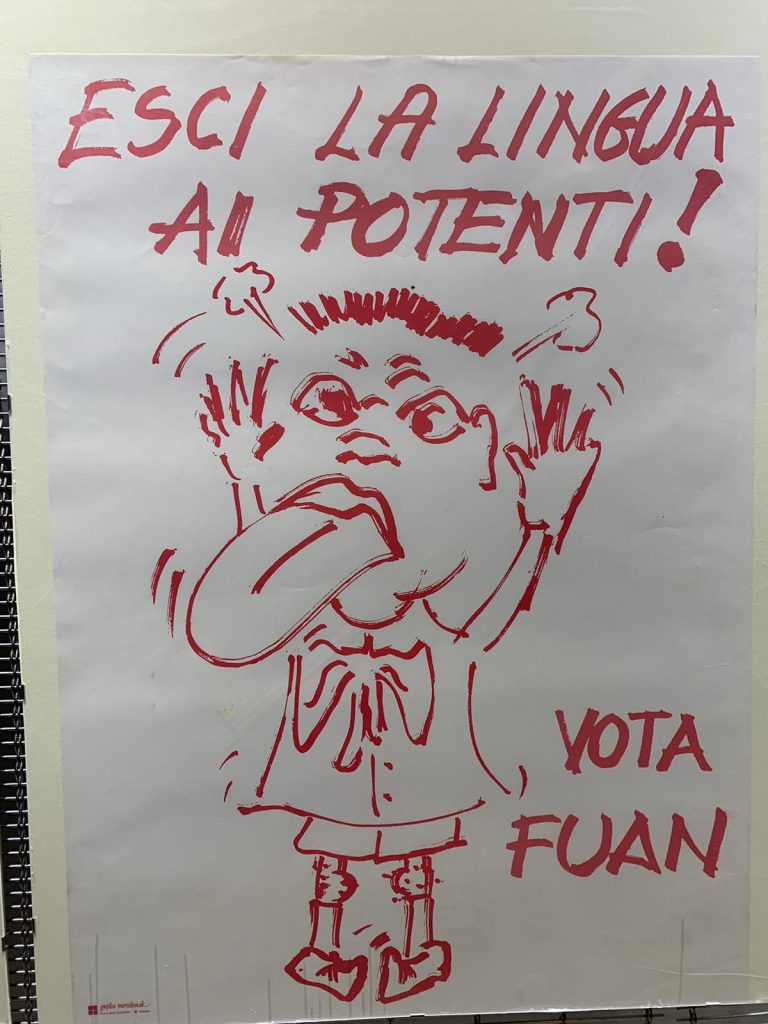 ESCI LA LINGUA
AI POTENTI!
VOTA
FUAN
grafica meridionale